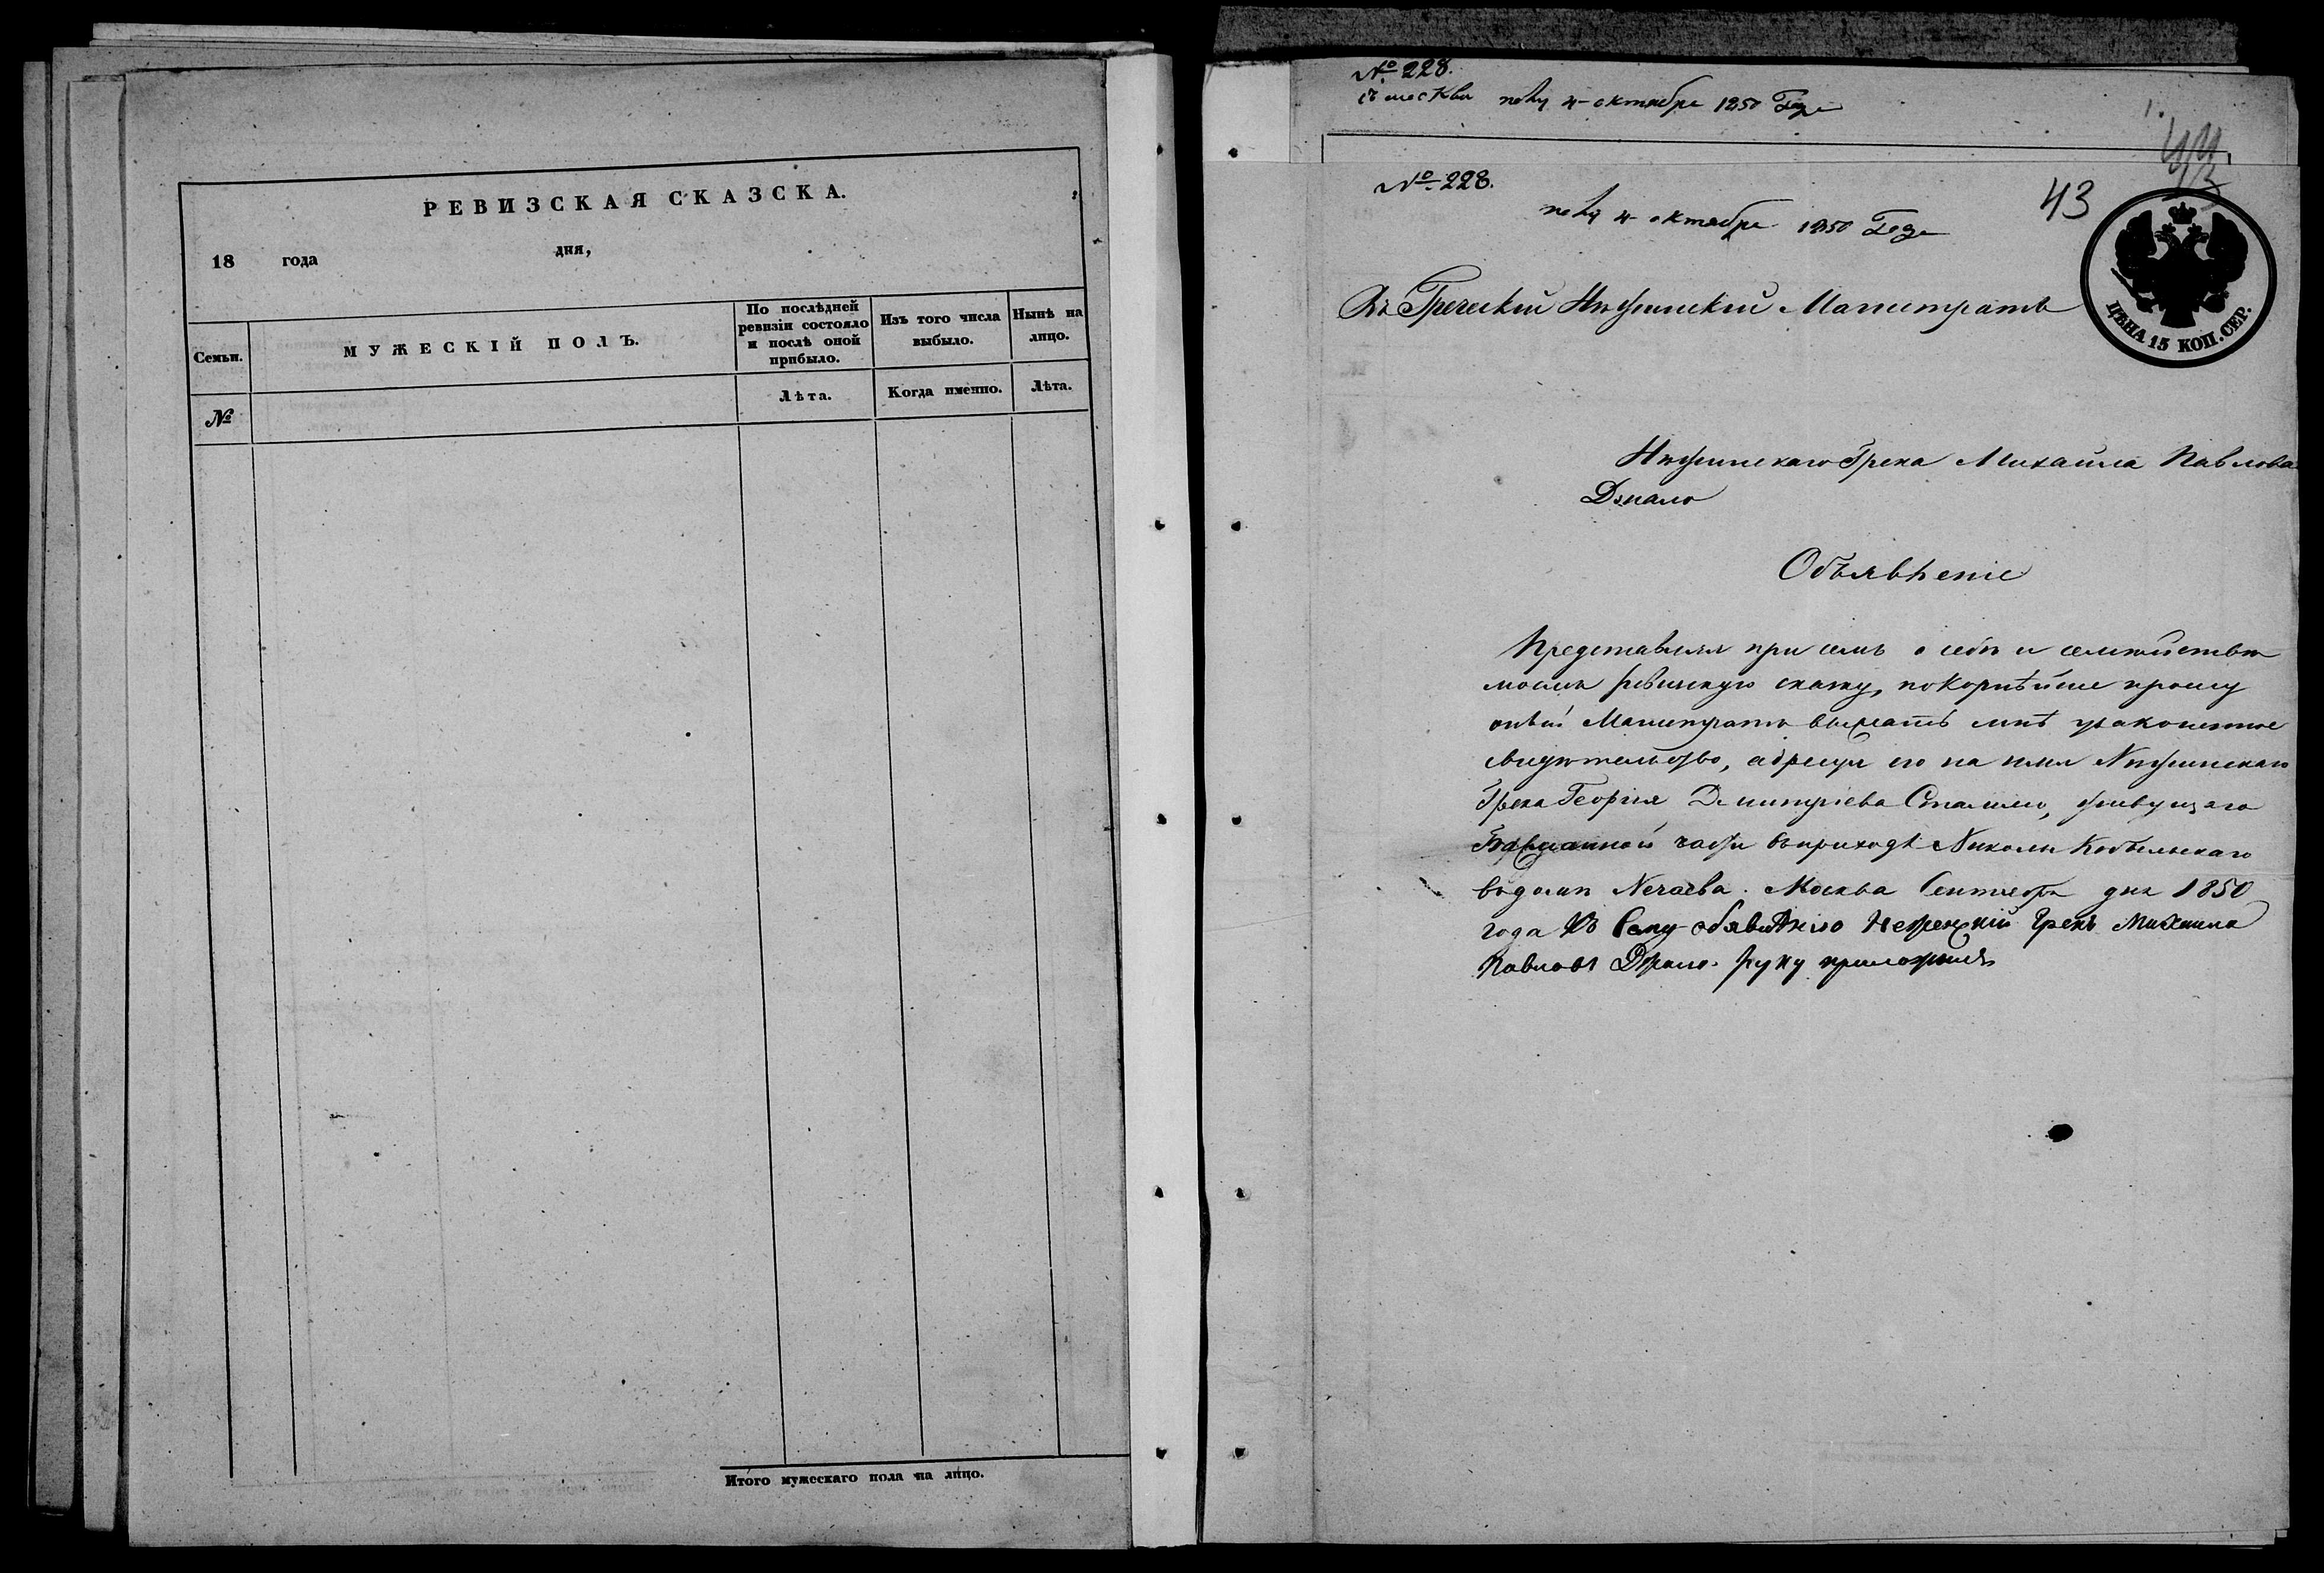 РЕВИЗСКАЯ СКАЗСКА.
18 года дня,
Семьи.
МУЖЕСКІЙ ПОЛЪ.
По послѣдней
ревизіи состояло
и послѣ оной
прибыло.
Изъ того числа
выбыло.
Нынѣ на
лицо.
№
Лѣта.
Когда именно.
Лѣта.
Итого мужескаго пола на лицо.
№ 228.
съ москвы 4 октября 1850 Года
№ 228.
4 октября 1850 Года
43
ЦѢНА 15 КОП. СЕР.
Въ Греческій Нѣжинскій Магистратъ
Нѣжинскаго Грека Михайла Павлова
Объявленіе
Представляя при семъ о себѣ и семействѣ
моемъ ревизскую сказку, покорнѣйше прошу
оный Магистратъ выслать мнѣ узаконенное
свидѣтельство, адресуя его на имя Нѣжинскаго
Грека Георгія Дмитріева живущаго
части въ приходѣ Николы Кобыльскаго
въ домѣ Нечаева. Москва Сентября дня 1850
года Къ Сему объявленію Греκъ Михаила
Павловъ руку приложилъ